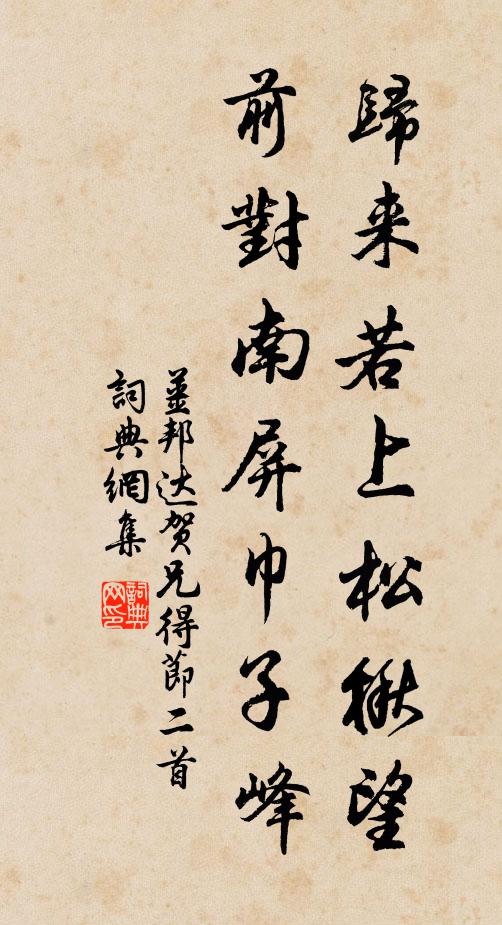 歸来若上松楸望
前對南屏巾子峰
姜邦达贺兄得節二首
詞典網集
詞典网印